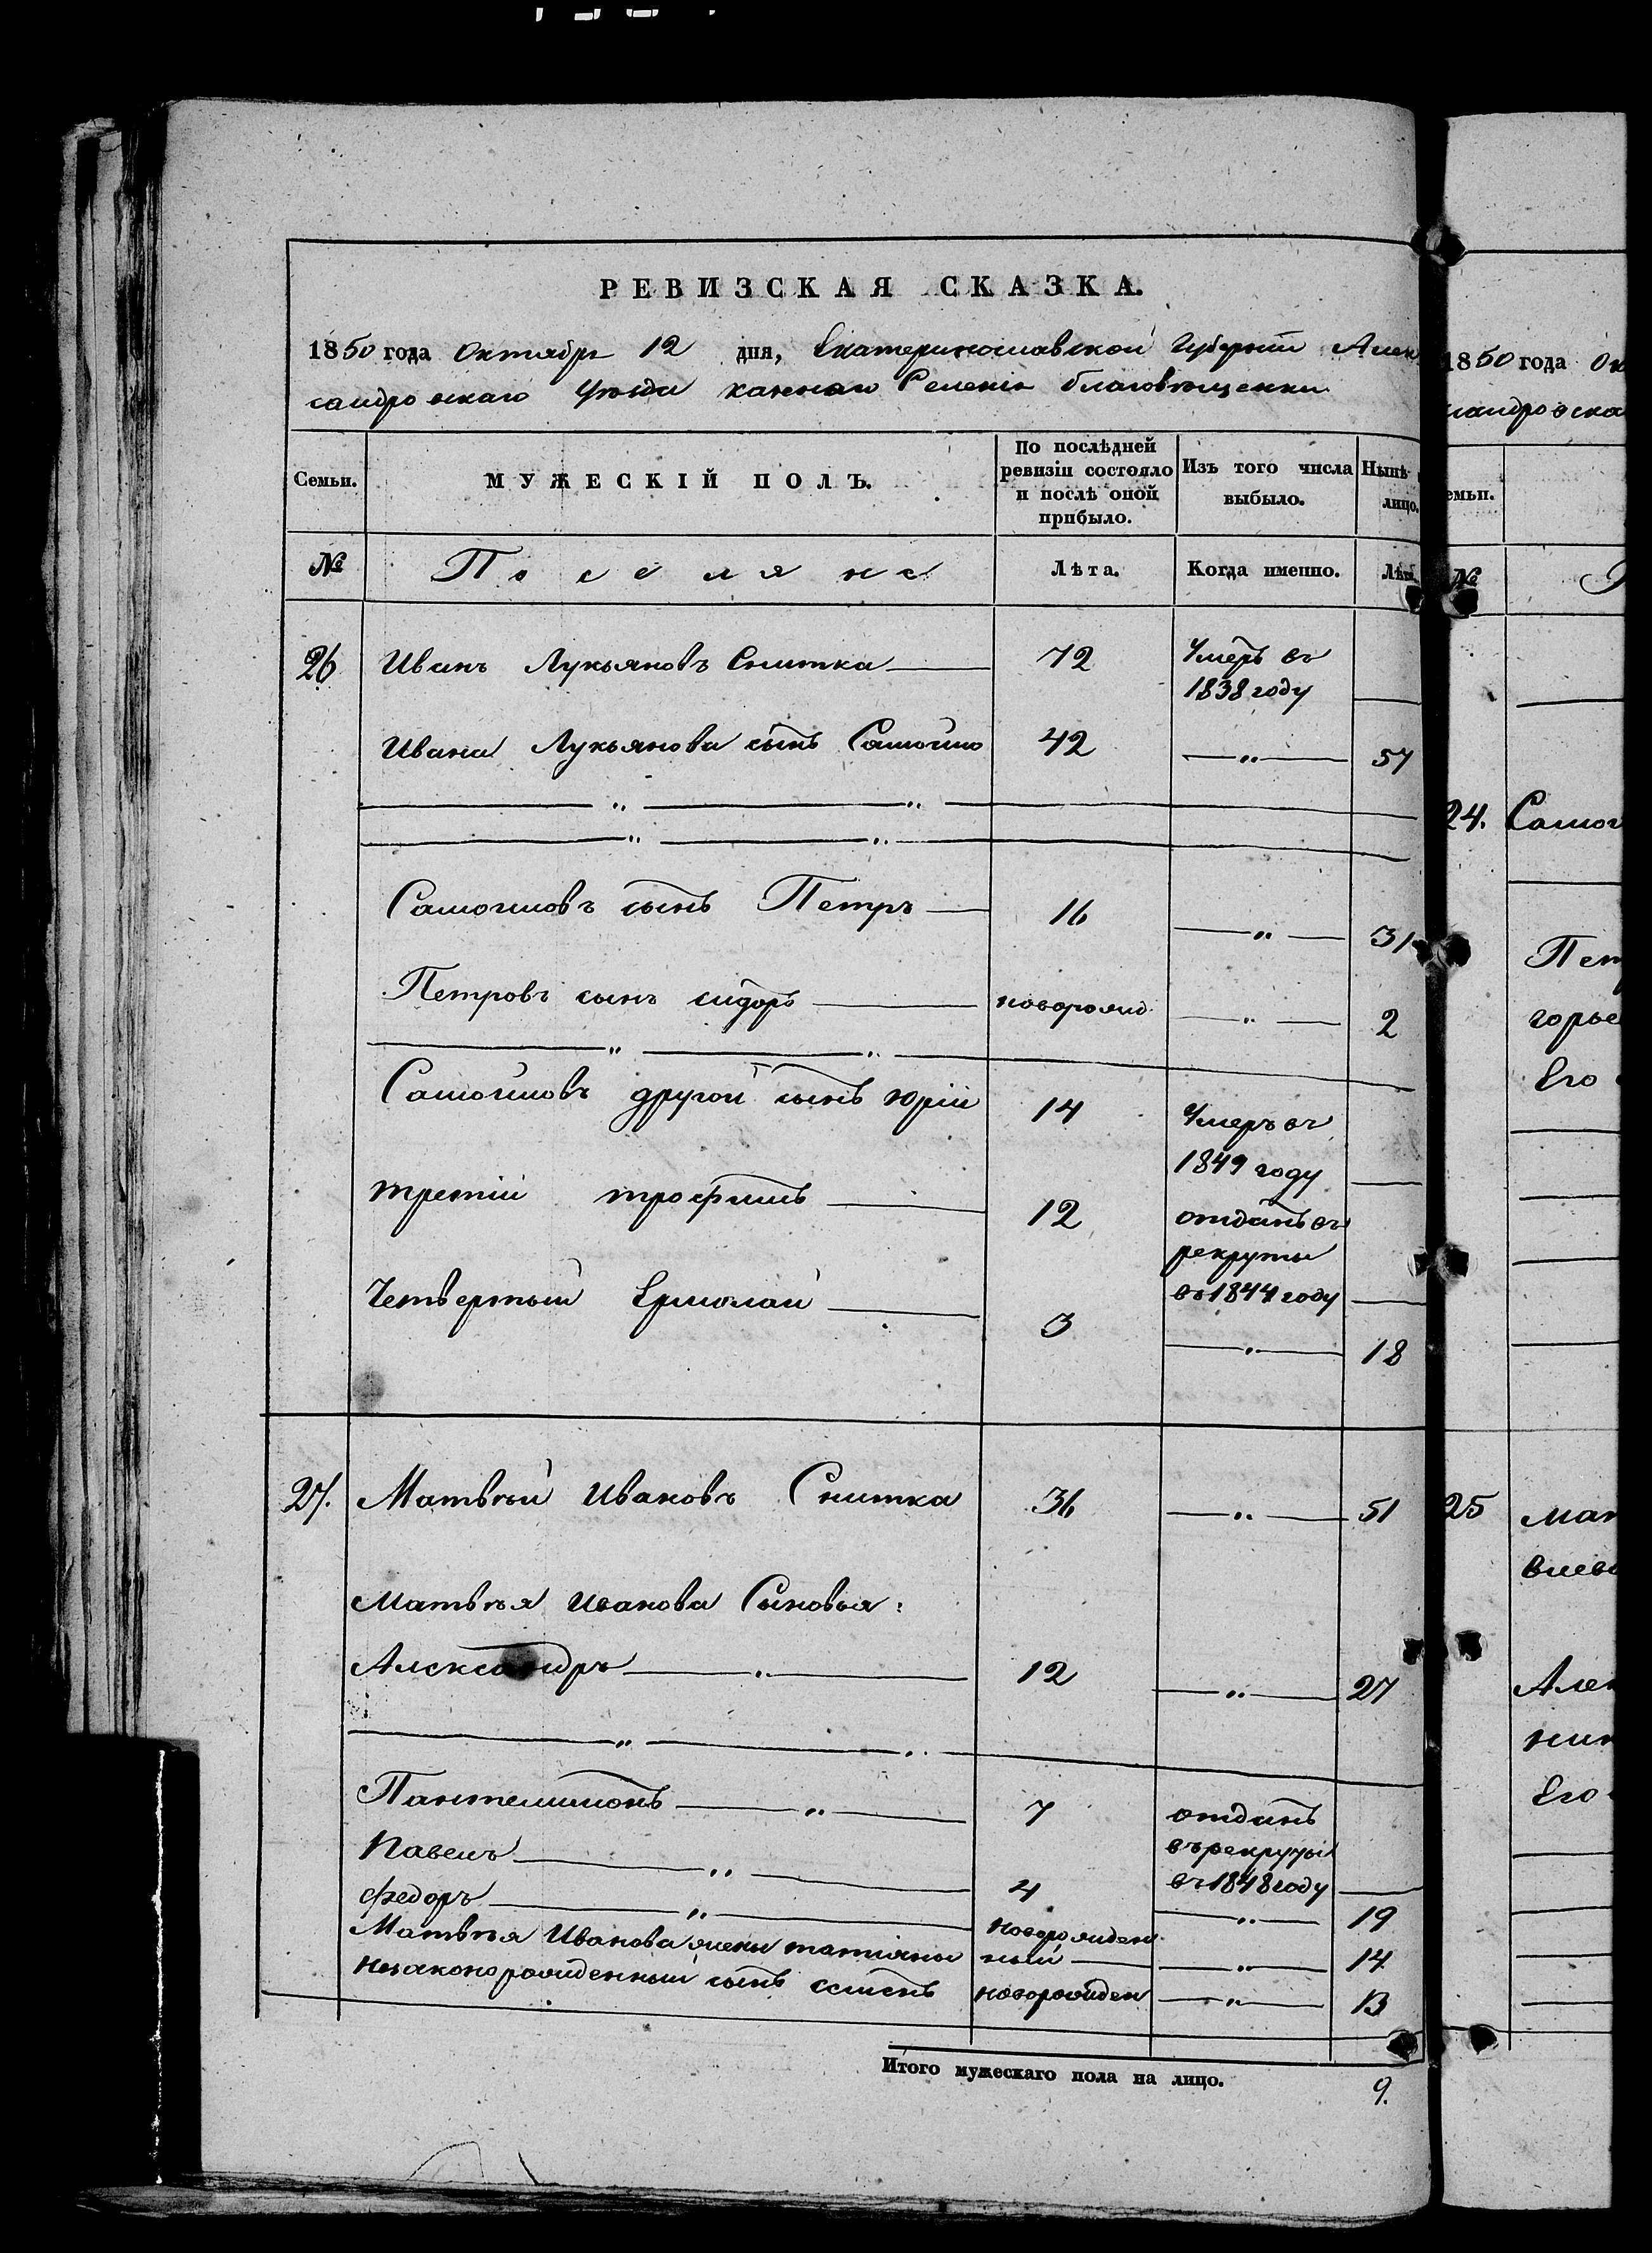 РЕВИЗСКАЯ СКАЗКА.
1850 года Октября 12 дня, Екатеринославской Губерніи Алек
сандровскаго Уѣзда казеннаго Селенія благовѣщенки
Семьи. МУЖЕСКІЙ ПОЛЪ. По послѣдней ревизіи состояло и послѣ оной прибыло. Изъ того числа выбыло. Нынѣ лицо.
№ Поселяне Лѣта. Когда именно. Лѣта.
26 Иванъ Лукьяновъ Снитка 72 Умеръ въ
1838 году
Ивана Лукьянова сынъ Самойло 42 " 57
" "
" "
Самойловъ сынъ Петръ 16 " 31
Петровъ сынъ сидоръ новорожд. " 2
" "
Самойловъ другой сынъ юрій 14 Умеръ въ
1849 году
третій трофимъ 12 отданъ въ
рекруты
въ 1844 году
Четвертый Ермолай 3 " 18
27. Матвѣй Ивановъ Снитка 36 " 51
Матвѣя Иванова Сыновья:
Александръ " 12 " 27
" "
Пантелимонъ " 7 отданъ
въ рекруты
въ 1848 году
Павелъ " 4 " 19
федоръ " новорожден
ный " 14
Матвѣя Иванова жены татіяны
незаконорожденный сынъ семенъ новорожден " 13
Итого мужескаго пола на лицо. 9.
1850 года Ок
сандровска
емьи.
№
24. Самой
Пет
горье
Его
25 мат
вѣев
Алек
Его